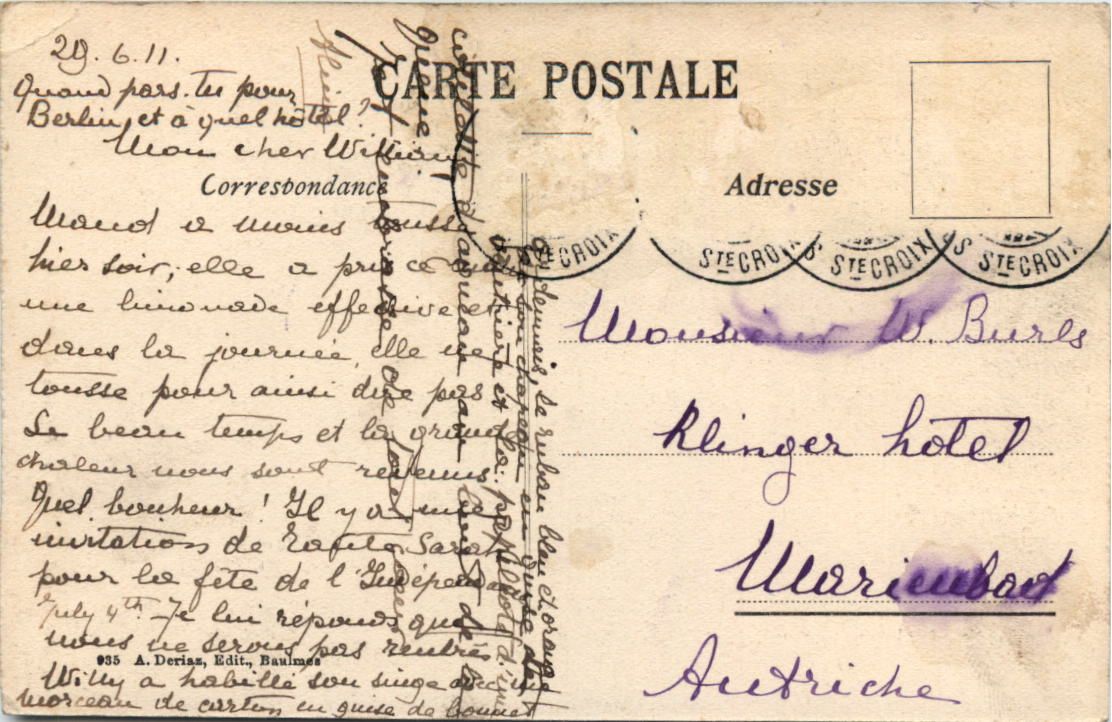 29.6.11.
Quand pars-tu pour
Berlin, et à quel hôtel?
Mon cher William
CARTE POSTALE
Correspondance
Adresse
Maud a moins toussé
hier soir, elle a pris ce
une limonade effective et
dans la journée, elle ne
tousse pour ainsi dire pas
Le beau temps et la grande
chaleur nous sont revenus.
Quel bonheur! Il y a une
invitations de Tante Sarah
pour la fête de l'Indépend
July 4th Je lui réponds que
nous ne serons pas rentrés
Willy a habillé son singe avec une
morceau de carton en guise de bonnet
935 A. Deriaz, Edit., Baulmes
STE CROIX
STE CROIX
STE CROIX
STE CROIX
Monsieur W. Burls
Klinger hôtel
Marienbad
Autriche
le ruban bleu
son chapeau en guise de